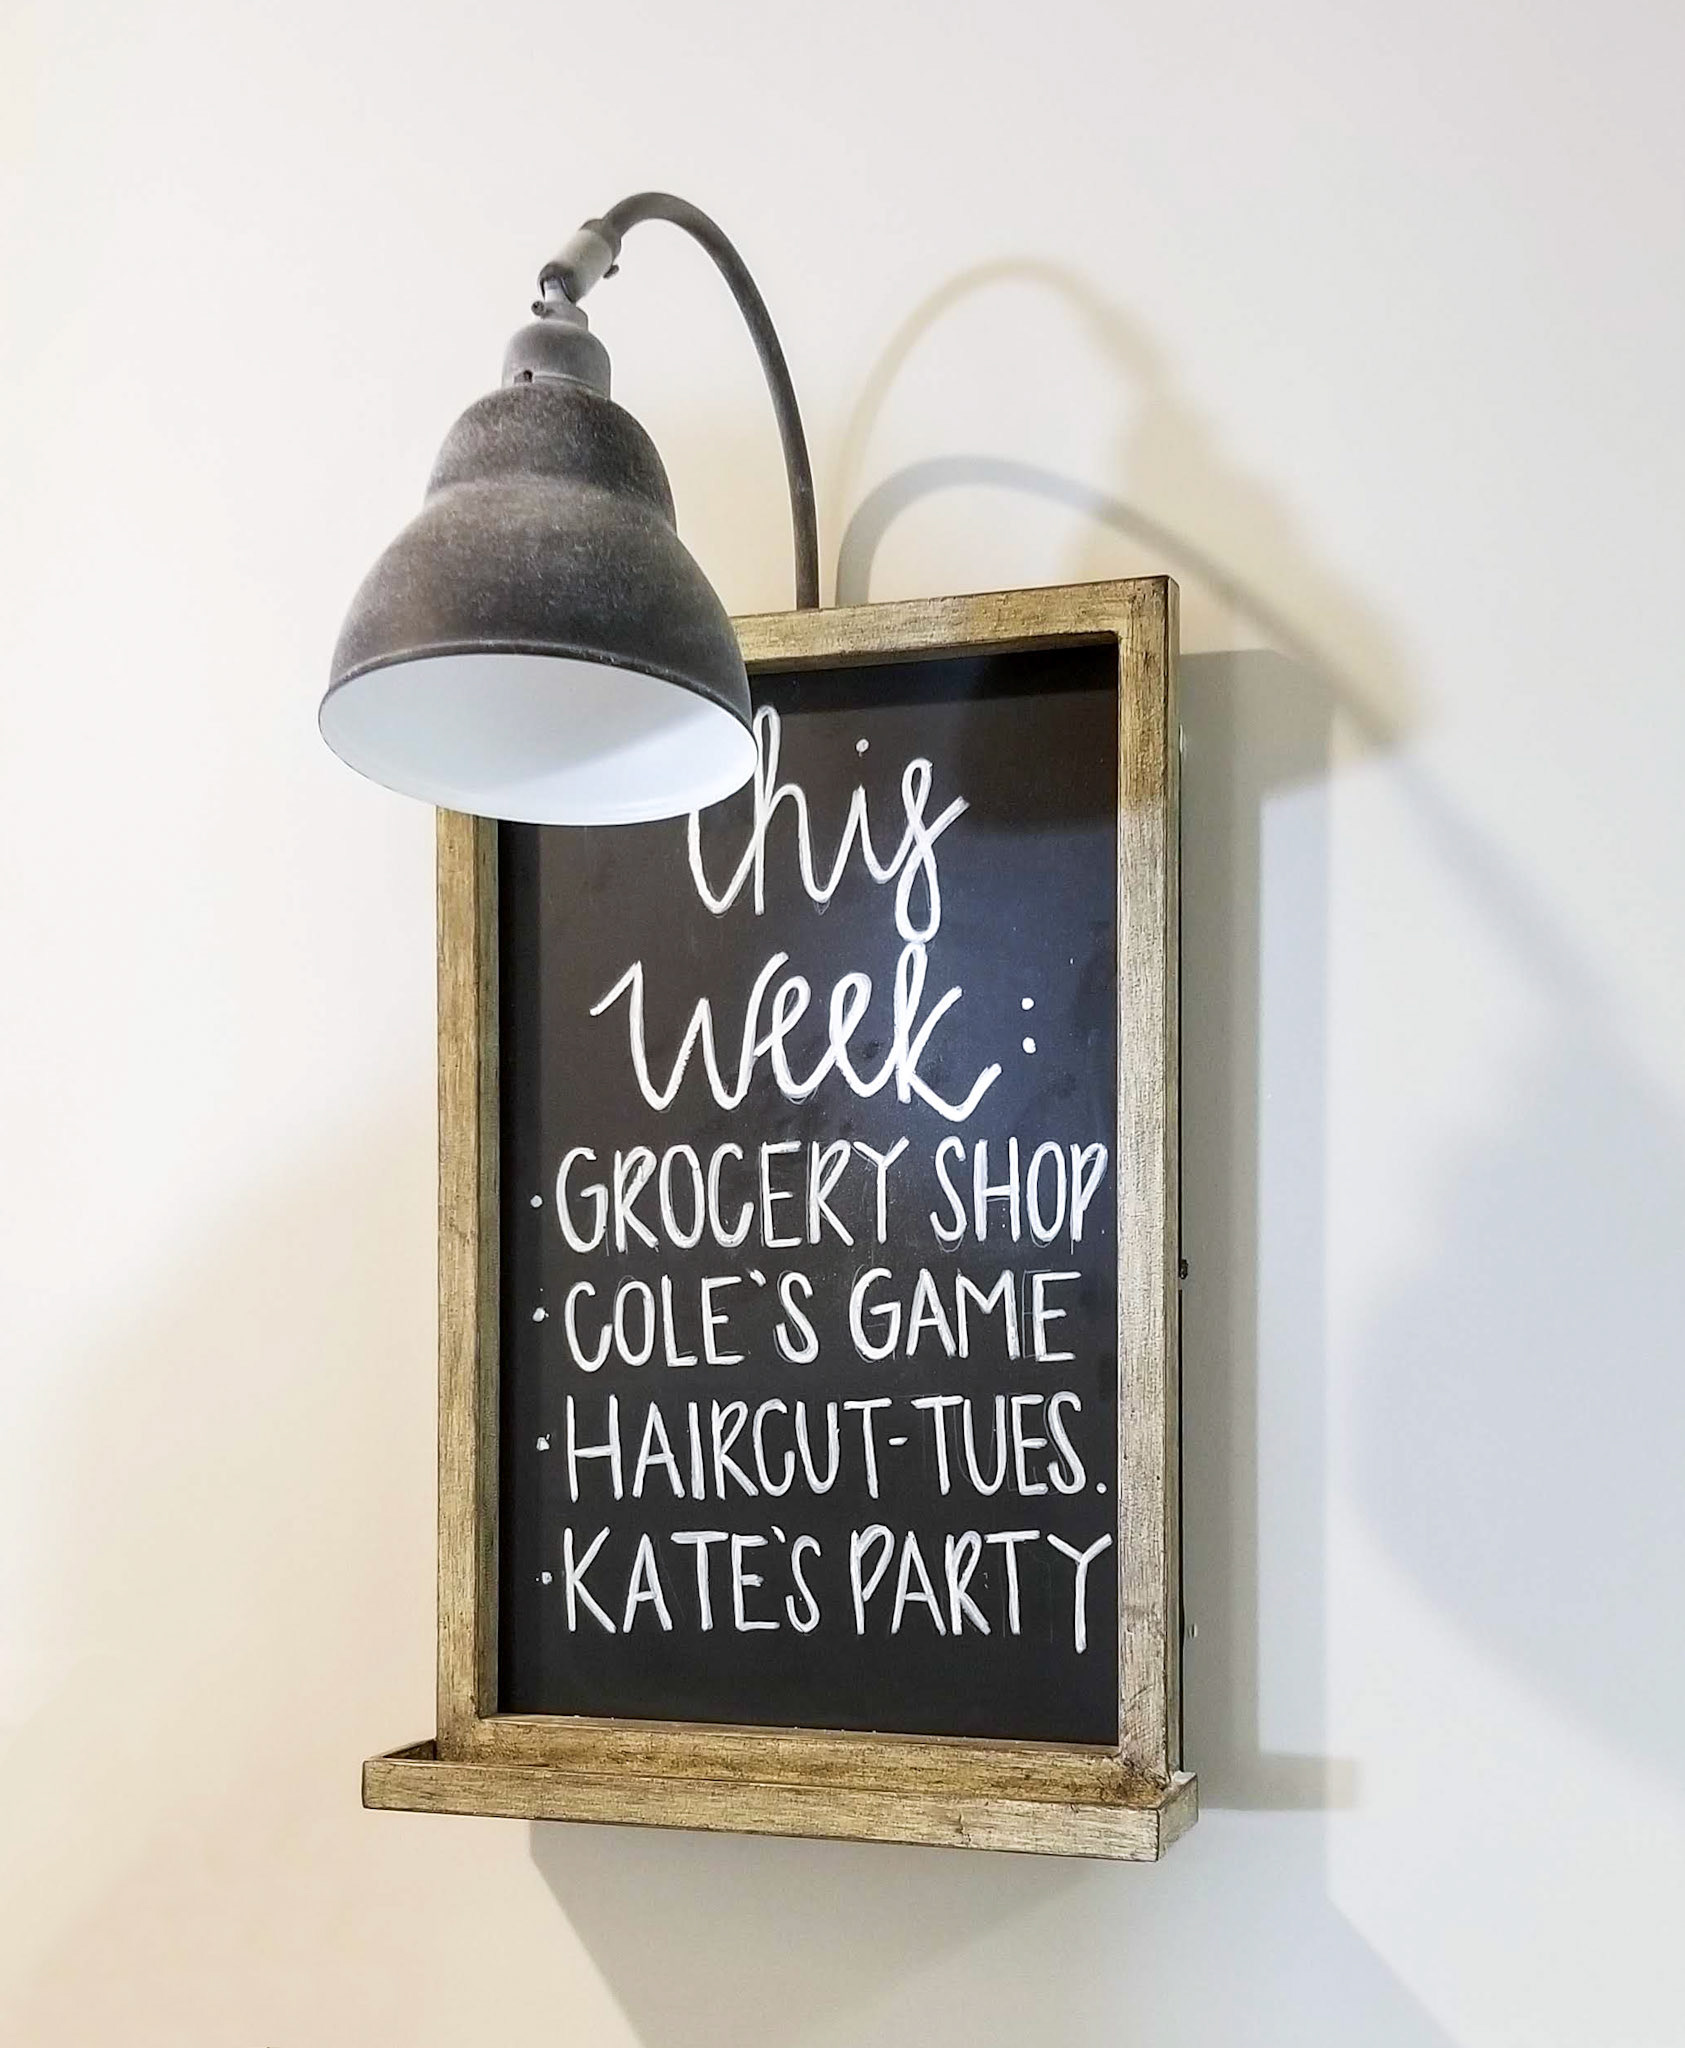 this
week:
· GROCERY SHOP
· COLE'S GAME
· HAIRCUT-TUES.
· KATE'S PARTY